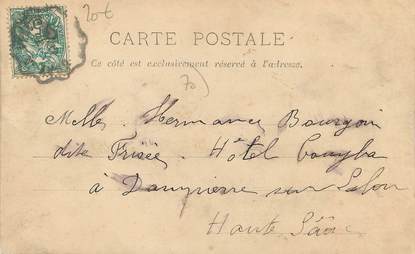 20€
CARTE POSTALE
Ce côté est exclusivement réservé à l'adresse.
70
Melle Hermance Bourgoin
dite Frisée. Hôtel Couyba
à Dampierre sur Salon
Haute Saône